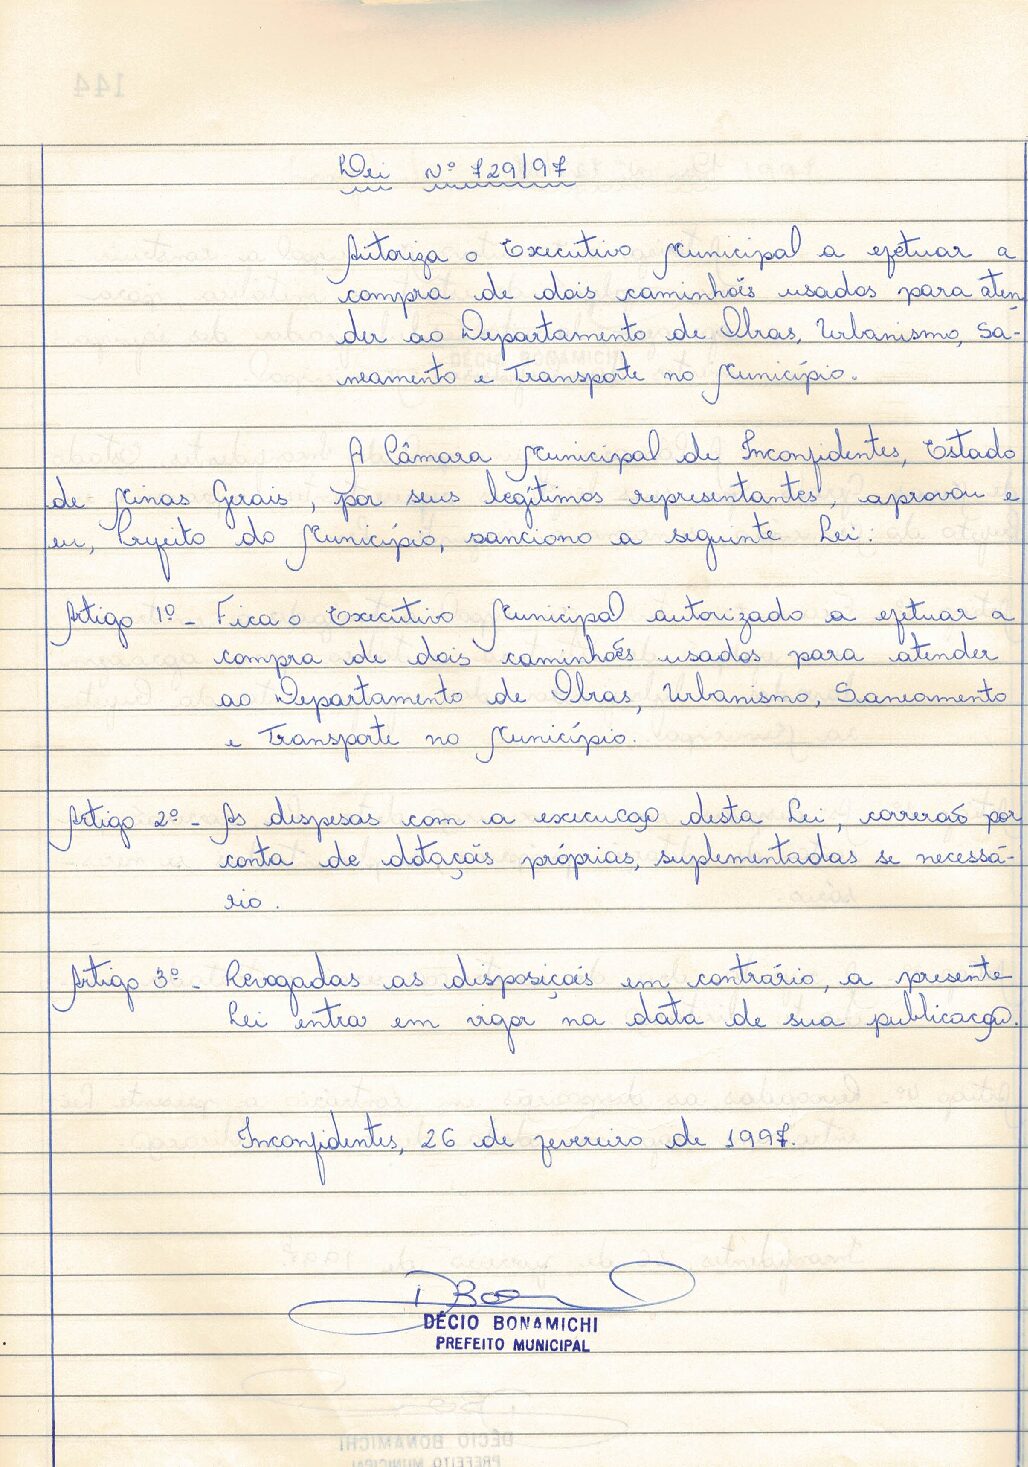 Lei Nº 729/97
Autoriza o Executivo Municipal a efetuar a
compra de dois caminhões usados para aten
der ao Departamento de Obras, Urbanismo, Sa-
neamento e Transporte no Município.
A Câmara Municipal de Inconfidentes, Estado
de Minas Gerais, por seus legítimos representantes, aprovou e
eu, Prefeito do Município, sanciono a seguinte Lei:
Artigo 1º - Fica o Executivo Municipal autorizado a efetuar a
compra de dois caminhões usados para atender
ao Departamento de Obras, Urbanismo, Saneamento
e Transporte no Município.
Artigo 2º - As despesas com a execucação desta Lei, correrão por
conta de dotações próprias, suplementadas se necessá-
rio.
Artigo 3º - Revogadas as disposições em contrário, a presente
Lei entra em vigor na data de sua publicação.
Inconfidentes, 26 de fevereiro de 1997.
DÉCIO BONAMICHI
PREFEITO MUNICIPAL